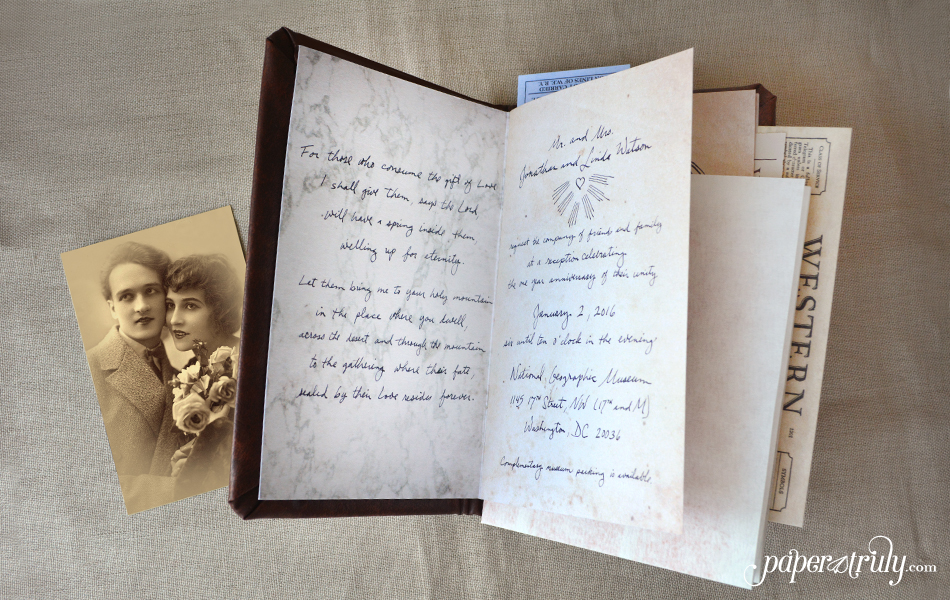 For those who consume the gift of Love
I shall give them, says the Lord
will have a spring inside them
welling up for eternity.
Let them bring me to your holy mountain
in the place where you dwell,
across the desert and through the mountain
to the gathering where their fate,
sealed by their Love resides forever.
Mr. and Mrs.
Jonathan and Linda Watson
request the company of friends and family
at a reception celebrating
the one year anniversary of their unity
January 2, 2016
six until ten o'clock in the evening
National Geographic Museum
1145 17th Street, NW (17th and M)
Washington, DC 20036
Complimentary museum parking is available.
LINES OF WE. R.Y.
CARRIED
WESTERN
paper&truly.com